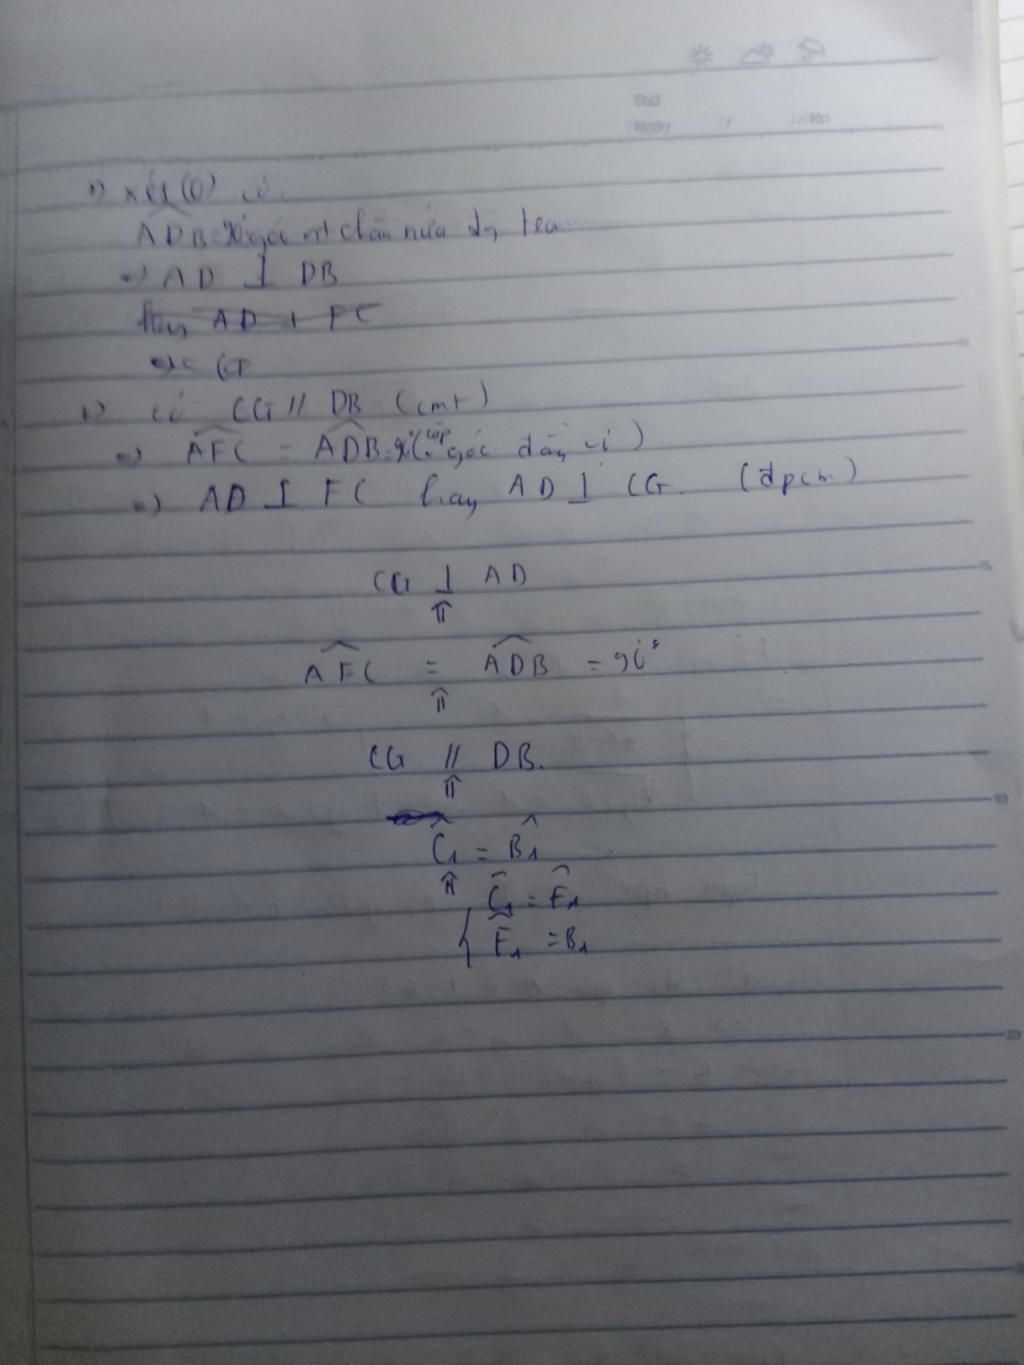 Thứ
Ngày
1) xét (O) có
ADB=90° góc nt chắn nửa đg tròn
=) AD ⊥ DB
hay AD ⊥ FC
=) CG
1) có CG // DB (cmt)
=) AFC = ADB=90° (cặp góc đồng vị)
=) AD ⊥ FC hay AD ⊥ CG. (đpcm)
CG ⊥ AD
⇑
AFC = ADB = 90°
⇑
CG // DB.
⇑
C1 = B1
⇑
{ C1 = E1
E1 = B1